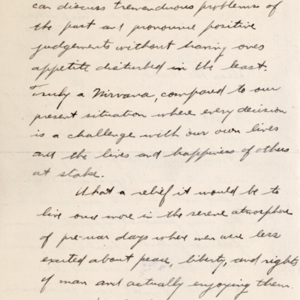 can discuss tremenduous problems of
the past and pronounce positive
judgements without having ones
appetite disturbed in the least.
Truly a Nirvana, compared to our
present situation where every decision
is a challenge with our own lives
and the lives and happiness of others
at stake.
What a relief it would be to
live once more in the serene atmosphere
of pre-war days when men were less
excited about peace, liberty, and rights
of man and actually enjoying them.